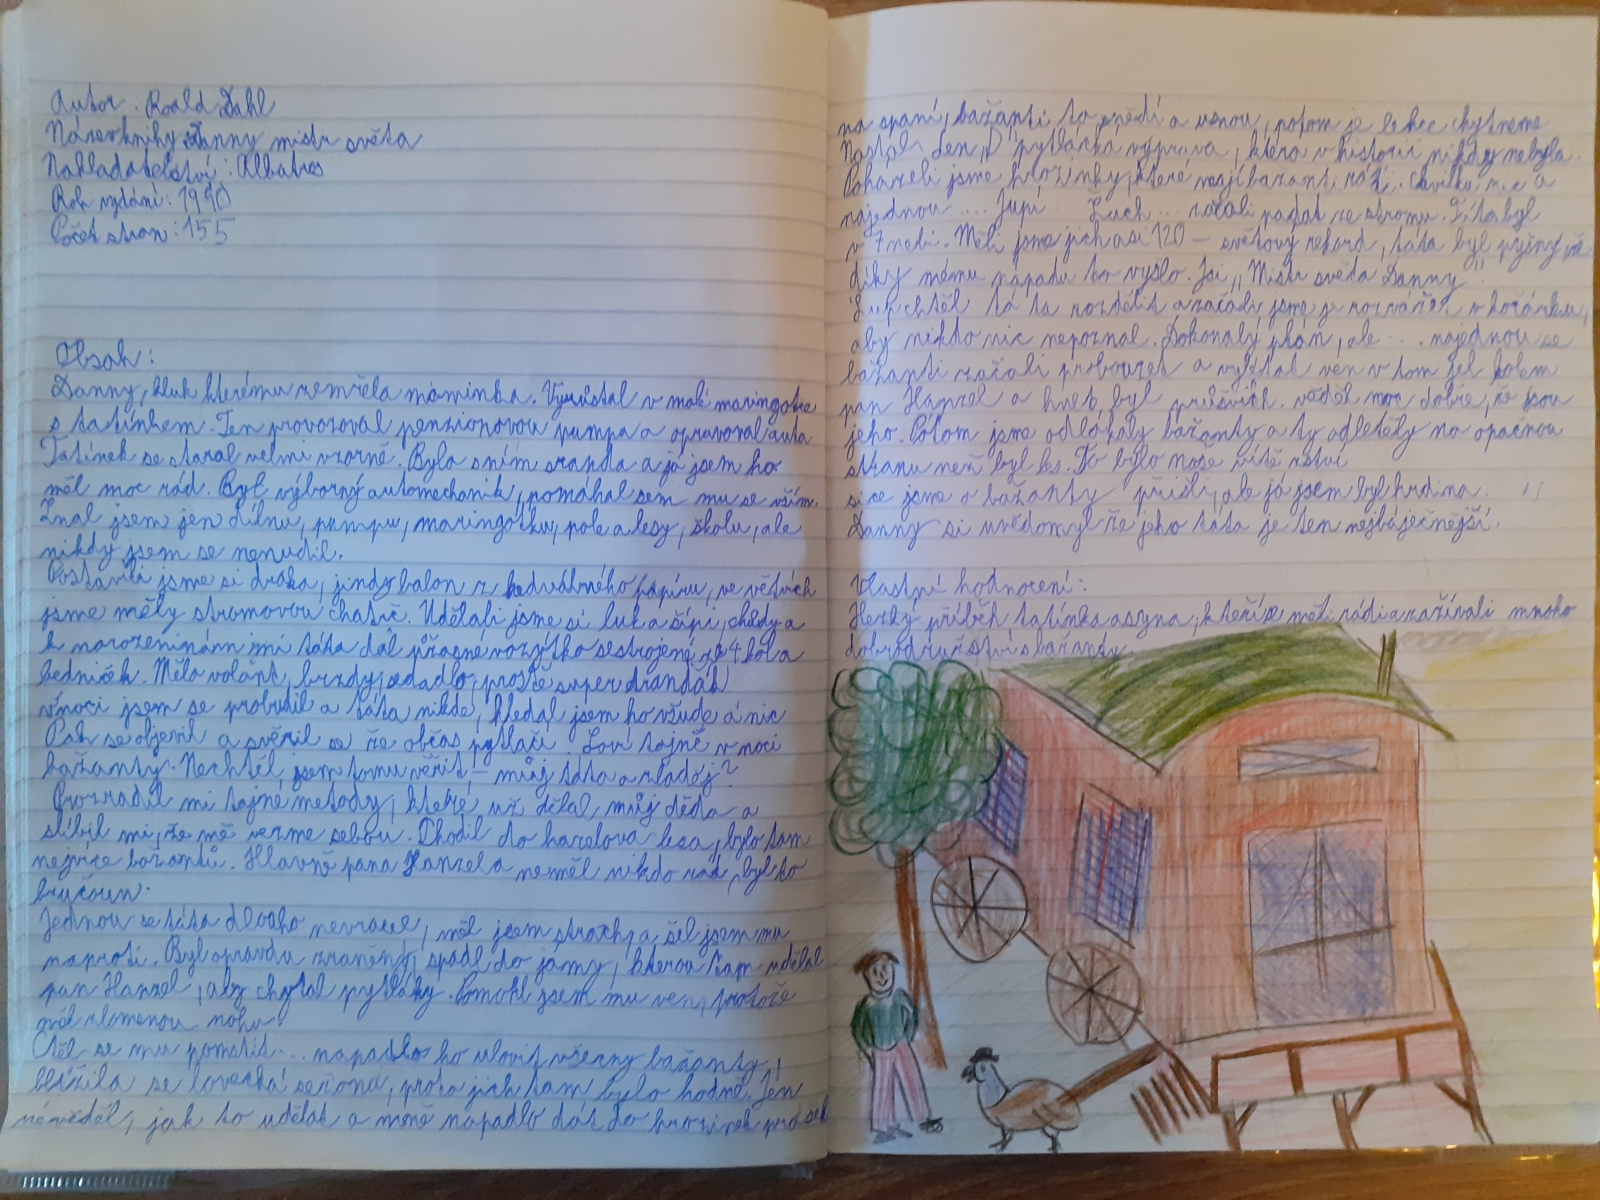 Autor: Roald Dahl
Název knihy: Danny mistr světa
Nakladatelství: Albatros
Rok vydání: 1990
Počet stran: 155
Obsah:
Danny, kluk kterému zemřela maminka. Vyrůstal v malé maringotce
s tatínkem. Ten provozoval penzionovou pumpu a opravoval auta
Tatínek se staral velmi vzorně. Byla sním sranda a já jsem ho
měl moc rád. Byl výborný automechanik, pomáhal sem mu se vším.
Znal jsem jen dílnu, pumpu, maringotku, pole a lesy, školu, ale
nikdy jsem se nenudil.
Postavili jsme si draka, jindy balon z hedvábného papíru, ve větvích
jsme měly stromovou chatič. Udělali jsme si luk a šípi, chůdy a
k narozeninám mi táta dal přasné vozýtko sestrojené ze 4 kol a
bedniček. Mělo volant, brzdy, sedadlo, prostě super drandák
V noci jsem se probudil a táta nikde, hledal jsem ho všude a nic
Pak se objevil a svěřil se že občas pytlačí. Loví tajně v noci
bažanty. Nechtěl jsem tomu věřit – můj táta a zloděj?
Prozradil mi tajné metody, které už dělal můj děda a
slíbil mi, že mě vezme sebou. Chodil do harelova lesa, bylo tam
nejvíce bažantů. Hlavně pana Hanzela neměl nikdo rád, byl to
bručoun.
Jednou se táta dlouho nevracel, měl jsem strach, a šel jsem mu
naproti. Byl opravdu zraněný, spadl do jámy, kterou tam udělal
pan Hanzel, aby chytal pytláky. Pomohl jsem mu ven, protože
měl zlomenou nohu.
Ctěl se mu pomstít... napadlo ho ulovit všecny bažanty,
blížila se lovecká sezona, proto jich tam bylo hodně. Jen
nevěděl, jak to udělat a mně napadlo dát do hrozinek prášek
na spaní, bažanti to snědí a usnou, potom je lehce chytneme
Nastal den „D" pytlácká výprava, která v historii nikdy nebyla.
Poházeli jsme hrozinky, které mají bažanti rádi. Chvilku nic a
najednou .... Jupí Žuch ... začali padat ze stromu. Táta byl
v 7 nebi. Měli jsme jich asi 120 – světový rekord, táta byl pyšný že
díky mému nápadu to vyšlo. Jsi „Mistr světa Danny"
Lup chtěl táta rozdělit a začali jsme je rozvážet v kočárku,
aby nikdo nic nepoznal. Dokonalý plán, ale ... najednou se
bažanti začali probouzet a vylétat ven v tom jel kolem
pan Hanzel a hned byl průšvih. věděl moc dobře, že sou
jeho. Potom jsme odlákaly bažanty a ty odletěly na opačnou
stranu než byl les. To bylo naše vítězství
sice jsme o bažanty přišli, ale já jsem byl hrdina.
Danny si uvědomyl že jeho táta je ten nejbáječnější.
Vlastní hodnocení:
Hezky příběh tatínka a syna, kteří se měli rádi a zažívali mnoho
dobrodružství s bažanty.